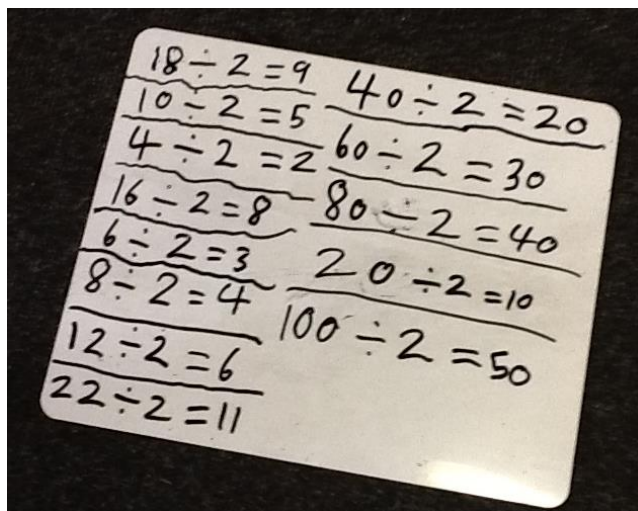 18÷2=9
10÷2=5
4÷2=2
16÷2=8
6÷2=3
8÷2=4
12÷2=6
22÷2=11
40÷2=20
60÷2=30
80÷2=40
20÷2=10
100÷2=50